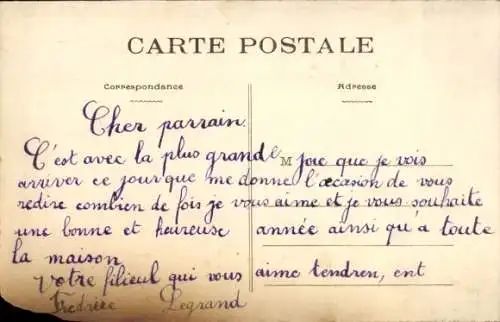 CARTE POSTALE
Correspondance
Adresse
Cher parrain.
C'est avec la plus grande M joie que je vois
arriver ce jour que me donne l'occasion de vous
redire combien de fois je vous aime et je vous souhaite
une bonne et heureuse année ainsi qu'à toute
la maison
Votre filieul qui vous aime tendren, ent
Legrand